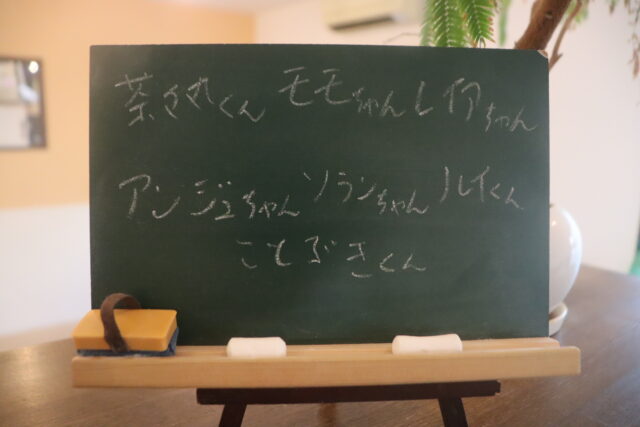 茶々丸くん モモちゃん レイアちゃん
アンジュちゃん ソランちゃん ルイくん
ことぶきくん